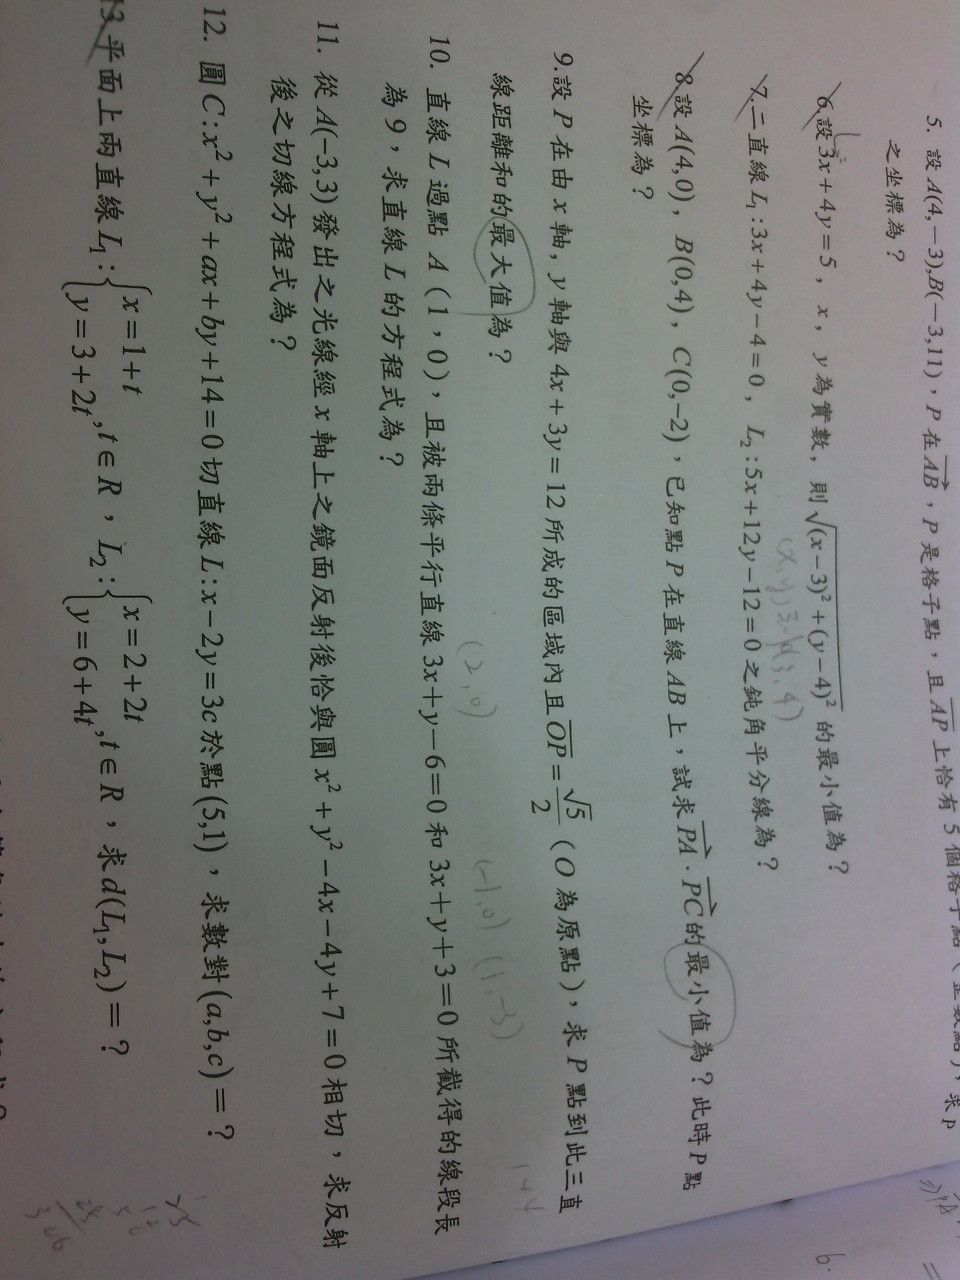 5. 設 A(4,−3),B(−3,11)，P 在 \overrightarrow{AB}，P 是格子點，且 \overline{AP} 上恰有 5 個格子點（整數點），求 P
之坐標為？
6. 設 3x+4y=5，x，y 為實數，則 √((x−3)²+(y−4)²) 的最小值為？
(x,y)到(3,4)
7. 二直線 L₁:3x+4y−4=0，L₂:5x+12y−12=0 之鈍角平分線為？
8. 設 A(4,0)，B(0,4)，C(0,−2)，已知點 P 在直線 AB 上，試求 \overrightarrow{PA}·\overrightarrow{PC} 的最小值為？此時 P 點
坐標為？
9. 設 P 在由 x 軸, y 軸與 4x+3y=12 所成的區域內且 \overline{OP}=√5/2（O 為原點），求 P 點到此三直
線距離和的最大值為？
(2,0) (-1,0) (1,-3)
10. 直線 L 過點 A（1，0），且被兩條平行直線 3x+y−6=0 和 3x+y+3=0 所截得的線段長
為 9，求直線 L 的方程式為？
11. 從 A(−3,3) 發出之光線經 x 軸上之鏡面反射後恰與圓 x²+y²−4x−4y+7=0 相切，求反射
後之切線方程式為？
12. 圓 C:x²+y²+ax+by+14=0 切直線 L:x−2y=3c 於點(5,1)，求數對(a,b,c)=？
13. 平面上兩直線 L₁:{x=1+t, y=3+2t ,t∈R，L₂:{x=2+2t, y=6+4t ,t∈R，求 d(L₁,L₂)=？